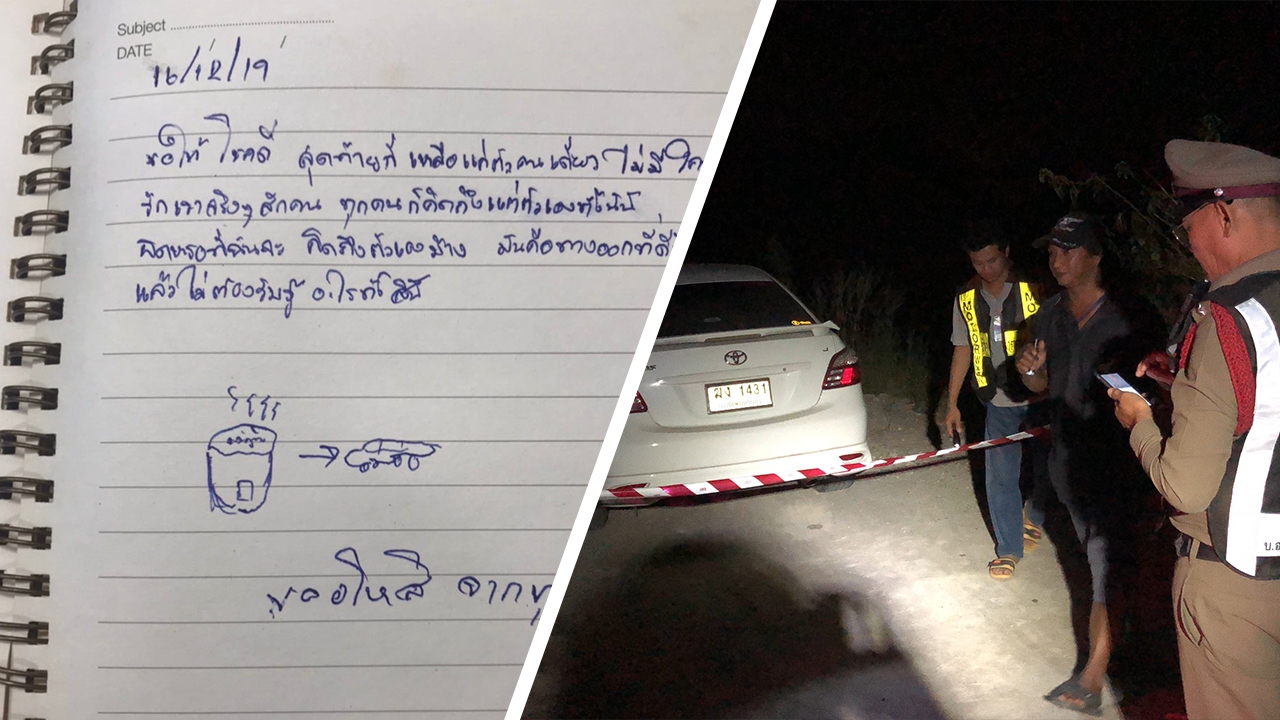 Subject
DATE
16/12/19
ขอให้ โชคดี สุดท้ายก็ เหลือแค่ตัวคนเดียว ไม่มี ใค
รักเราจริงๆ สักคน ทุกคนก็คิดถึงแต่ตัวเองทั้งนั้น
คิดถึงตัวเองบ้าง มันคือทางออกที่ดี
แล้ว ไม่ต้องรับรู้ อะไรอีก
จาก
MOTORWAY
ฆง 1431